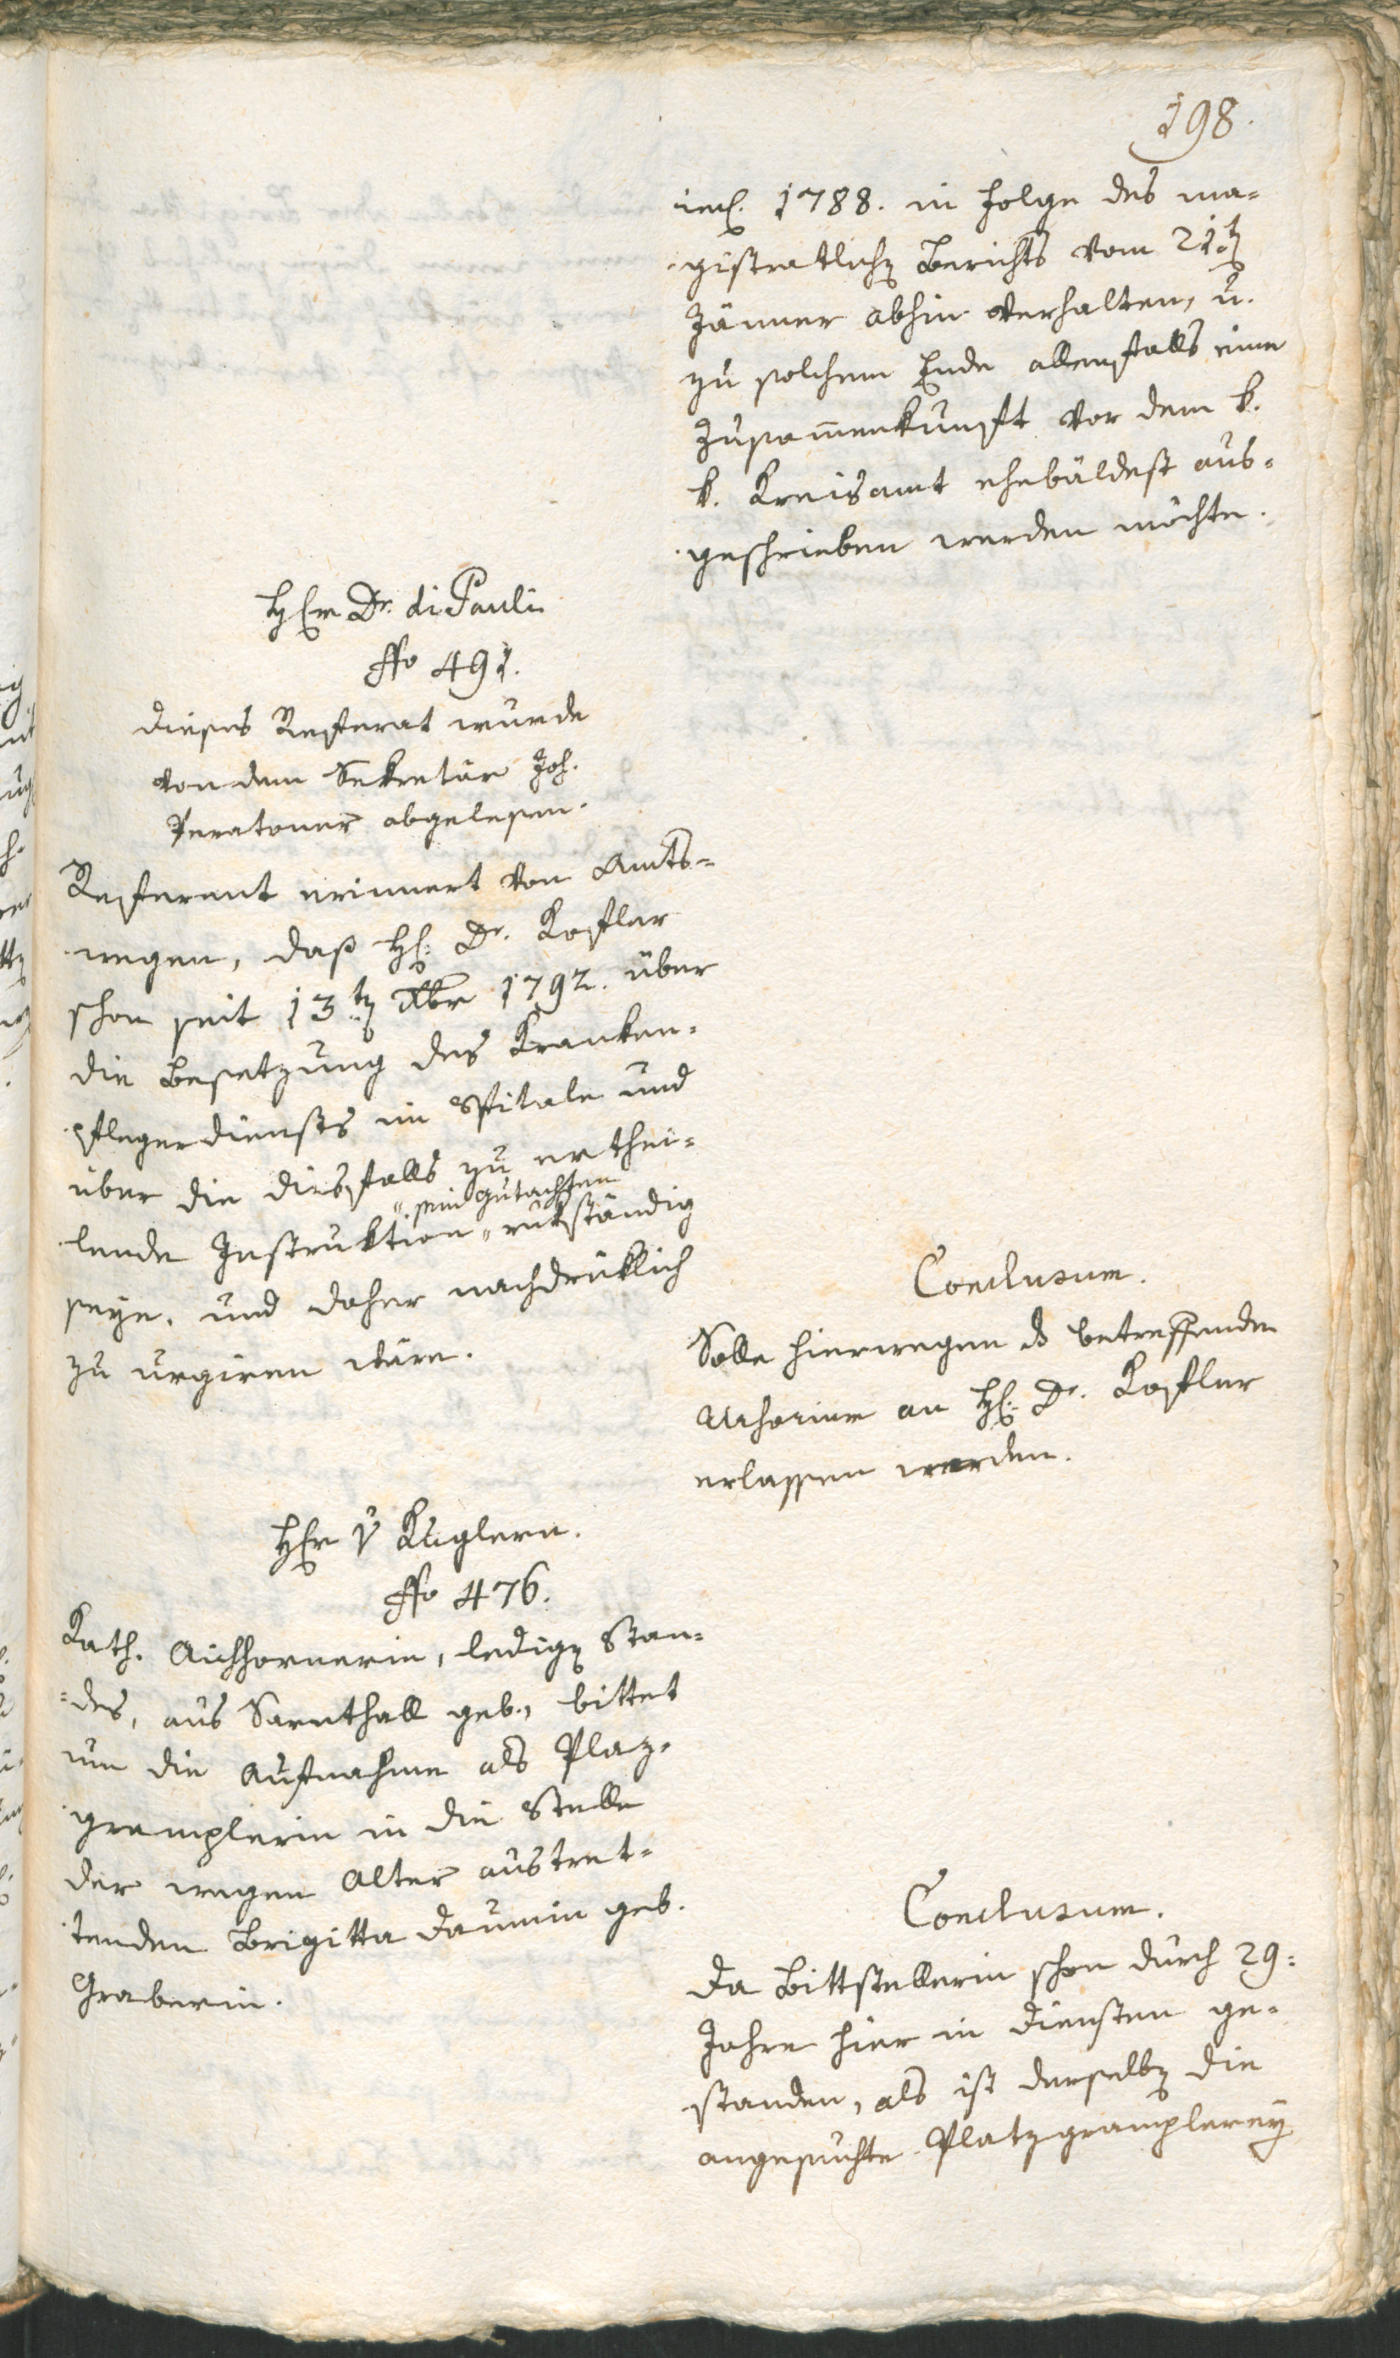 198.
incl. 1788. in Folge des ma-
gistratlichen Berichts vom 21ten
Jänner abhin verhalten, u.
zu solchem Ende allenfalls eine
Zusammenkunft vor dem k.
k. Kreisamt ehebäldest aus-
geschrieben werden möchte.
Herr Dr. di Pauli
Nro 491.
dieses Referat wurde
von dem Sekretär Joh.
Peratoner abgelesen.
Referent erinnert von Amts-
wegen, daß H. Dr. Kofler
schon seit 13ten Xbr 1792. über
die Besetzung des Kranken-
pflegerdiensts im Spitale und
über die diesfalls zu erthei-
" sein gutachten
lende Instruktion " rükständig
seye, und daher nachdrüklich
zu urgiren wäre.
Conclusum.
Solle hierwegen das betreffende
Urhorium an H. Dr. Kofler
erlassen werden.
Herr v Kuglern.
Nro 476.
Kath. Aichhornerin, ledigen Stan-
des, aus Sarnthall geb., bittet
um die Aufnahme als Plaz-
gremplerin in die Stelle
der wegen Alter austret-
tenden Brigitta Daumin geb.
Graberin.
Conclusum.
Da Bittstellerin schon durch 29:
Jahre hier in Diensten ge-
standen, als ist derselben die
angesuchte Platzgramplerey